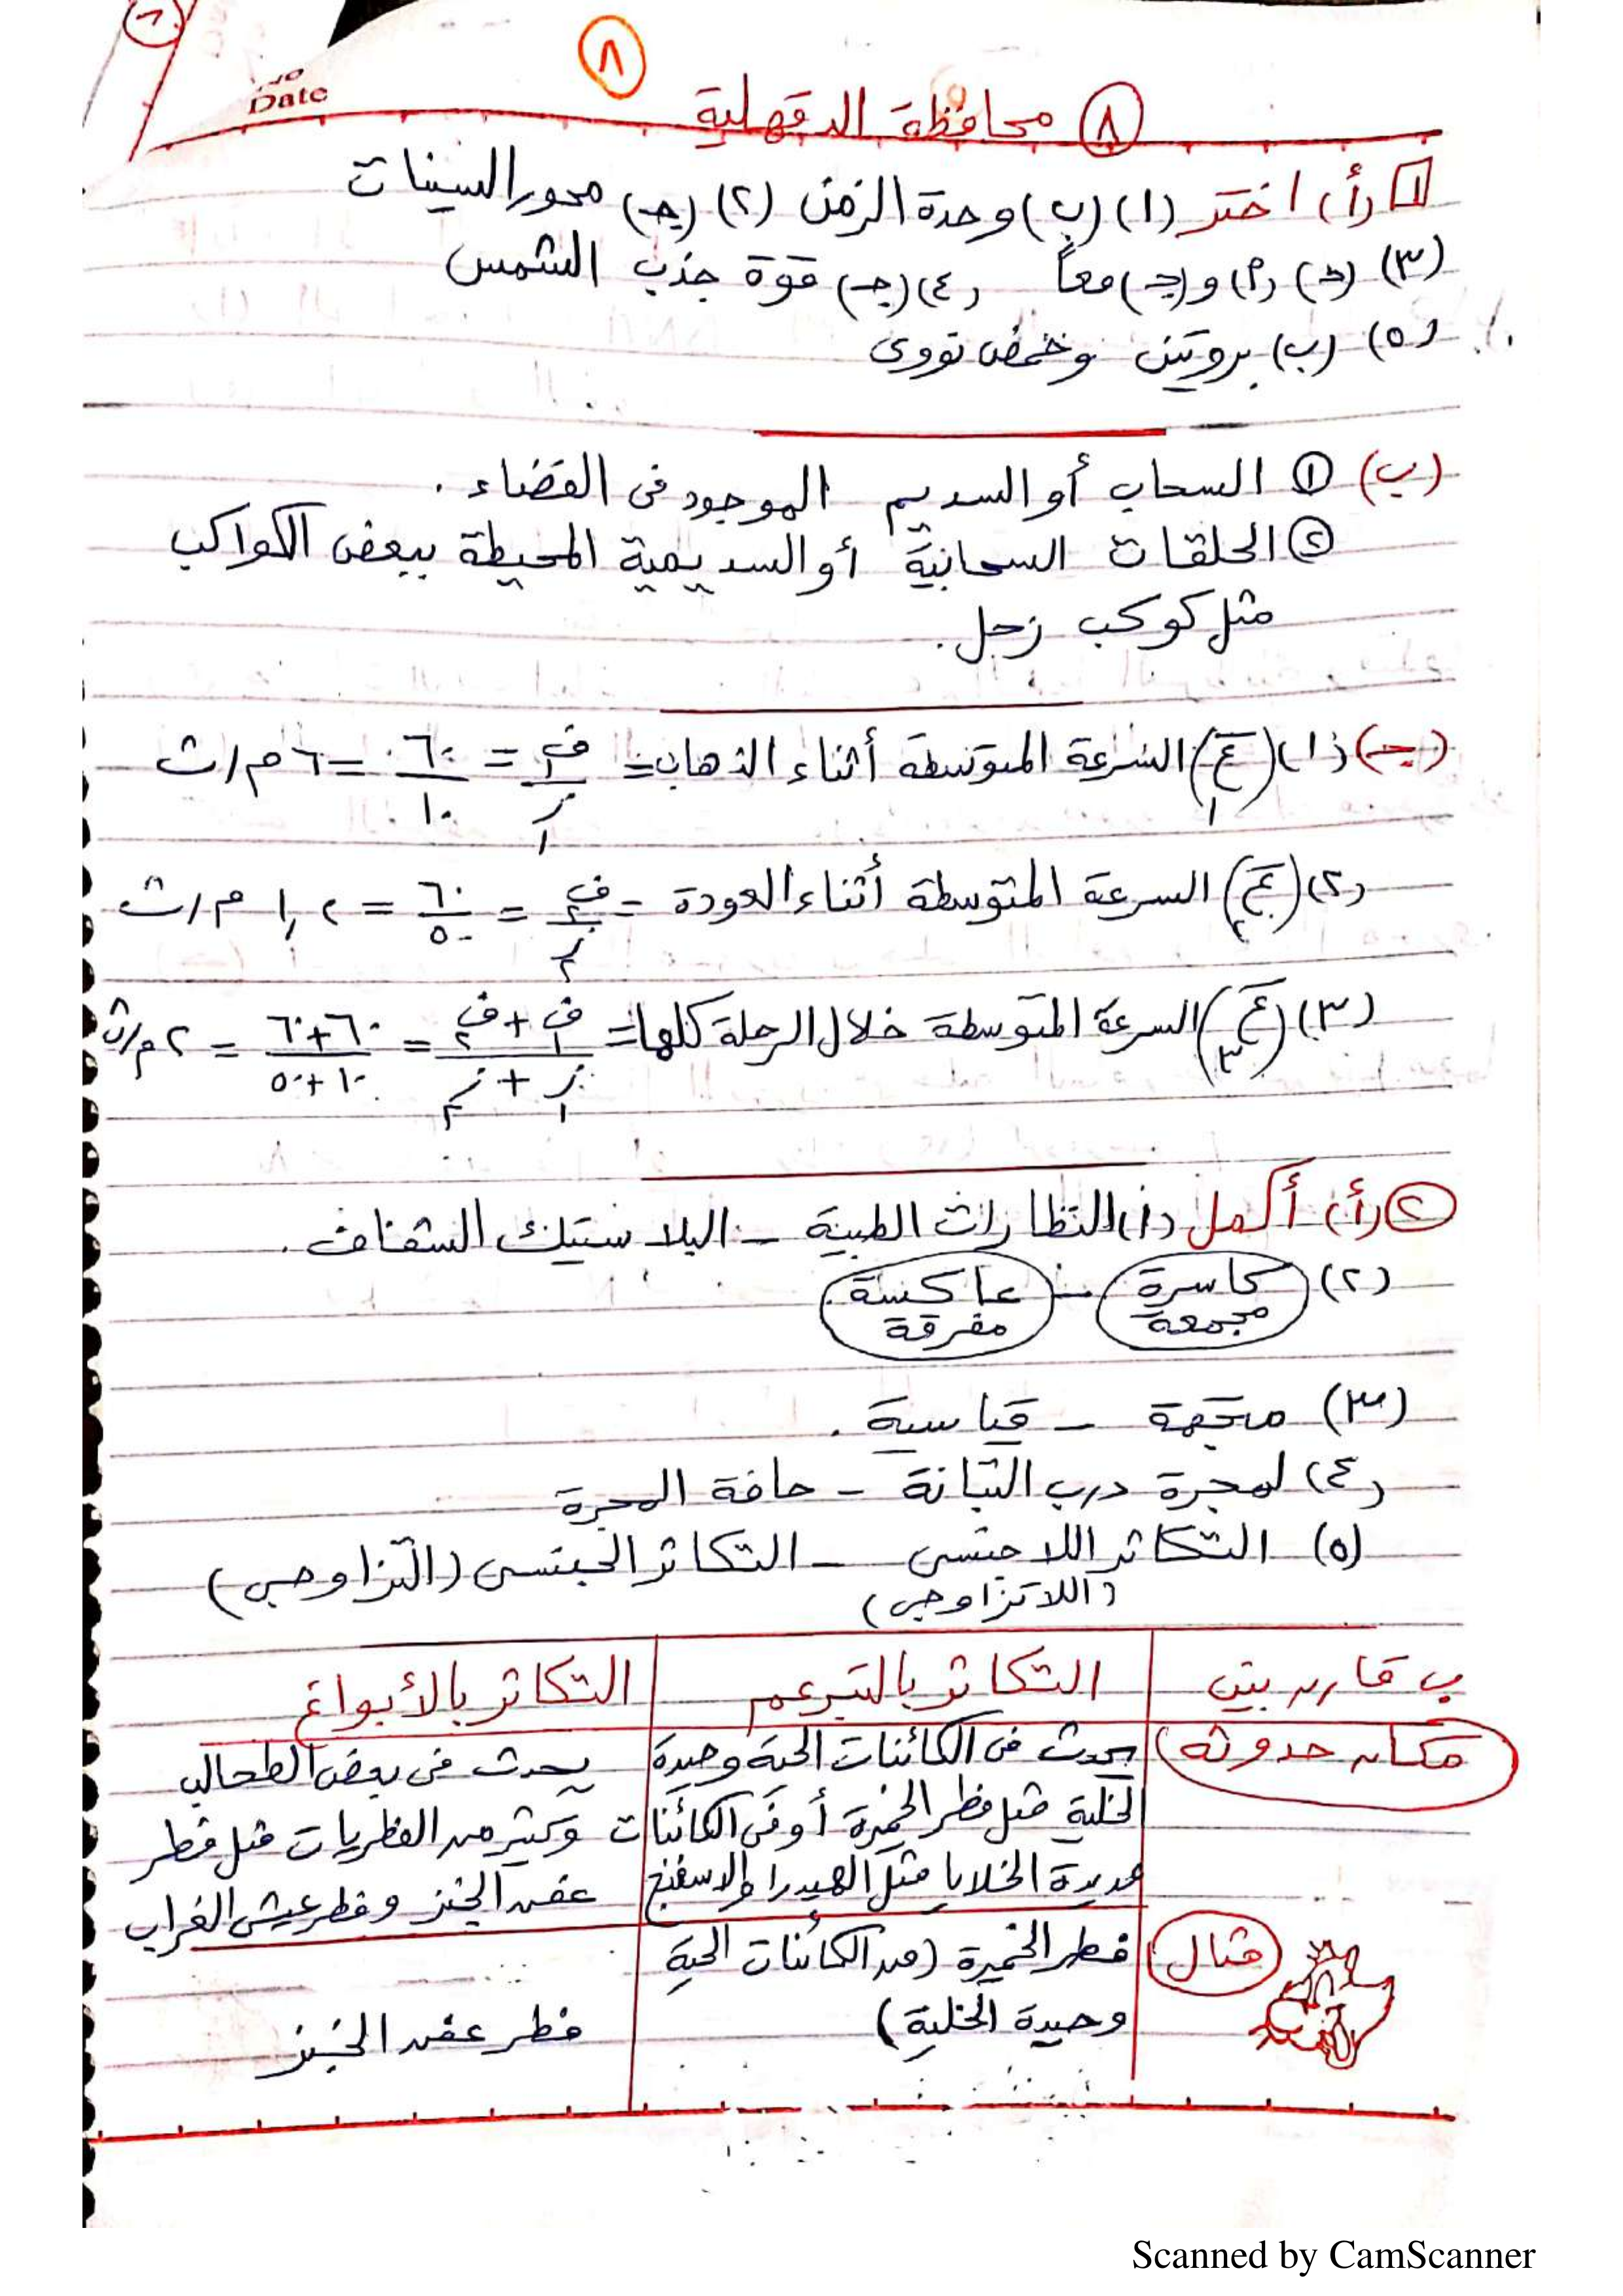 ٨
Date
٨ محافظة الدقهلية
١ (أ) اختر (١) (ب) وحدة الزمن (٢) (جـ) محور السينات
(٣) (د) (أ) و(جـ) معاً (٤) (جـ) قوة جذب الشمس
(٥) (ب) بروتين وحمض نووى
(ب) ١ السحاب أو السديم الموجود فى الفضاء .
٢ الحلقات السحابية أو السديمية المحيطة ببعض الكواكب
مثل كوكب زحل .
(جـ) (١) (ع١) السرعة المتوسطة أثناء الذهاب = ف١/ز١ = ٦٠/١٠ = ٦ م/ث
(٢) (ع٢) السرعة المتوسطة أثناء العودة = ف٢/ز٢ = ٦٠/٥٠ = ١,٢ م/ث
(٣) (ع٣) السرعة المتوسطة خلال الرحلة كلها = ف١+ف٢/ز١+ز٢ = ٦٠+٦٠/١٠+٥٠ = ٢ م/ث
٢ (أ) أكمل (١) النظارات الطبية - البلاستيك الشفاف .
(٢) كاسرة مجمعة - عاكسة مفرقة
(٣) متجهة - قياسية .
(٤) لمجرة درب التبانة - حافة المجرة
(٥) التكاثر اللاجنسى - التكاثر الجنسى (التزاوجى)
(اللاتزاوجى)
ب قارن بين التكاثر بالتبرعم التكاثر بالأبواغ
مكان حدوثه يحدث فى الكائنات الحية وحيدة يحدث فى بعض الطحالب
الخلية مثل فطر الخميرة أو فى الكائنات وكثير من الفطريات مثل فطر
عديدة الخلايا مثل الهيدرا والاسفنج عفن الخبز وفطر عيش الغراب
مثال فطر الخميرة (من الكائنات الحية
وحيدة الخلية) فطر عفن الخبز
Scanned by CamScanner